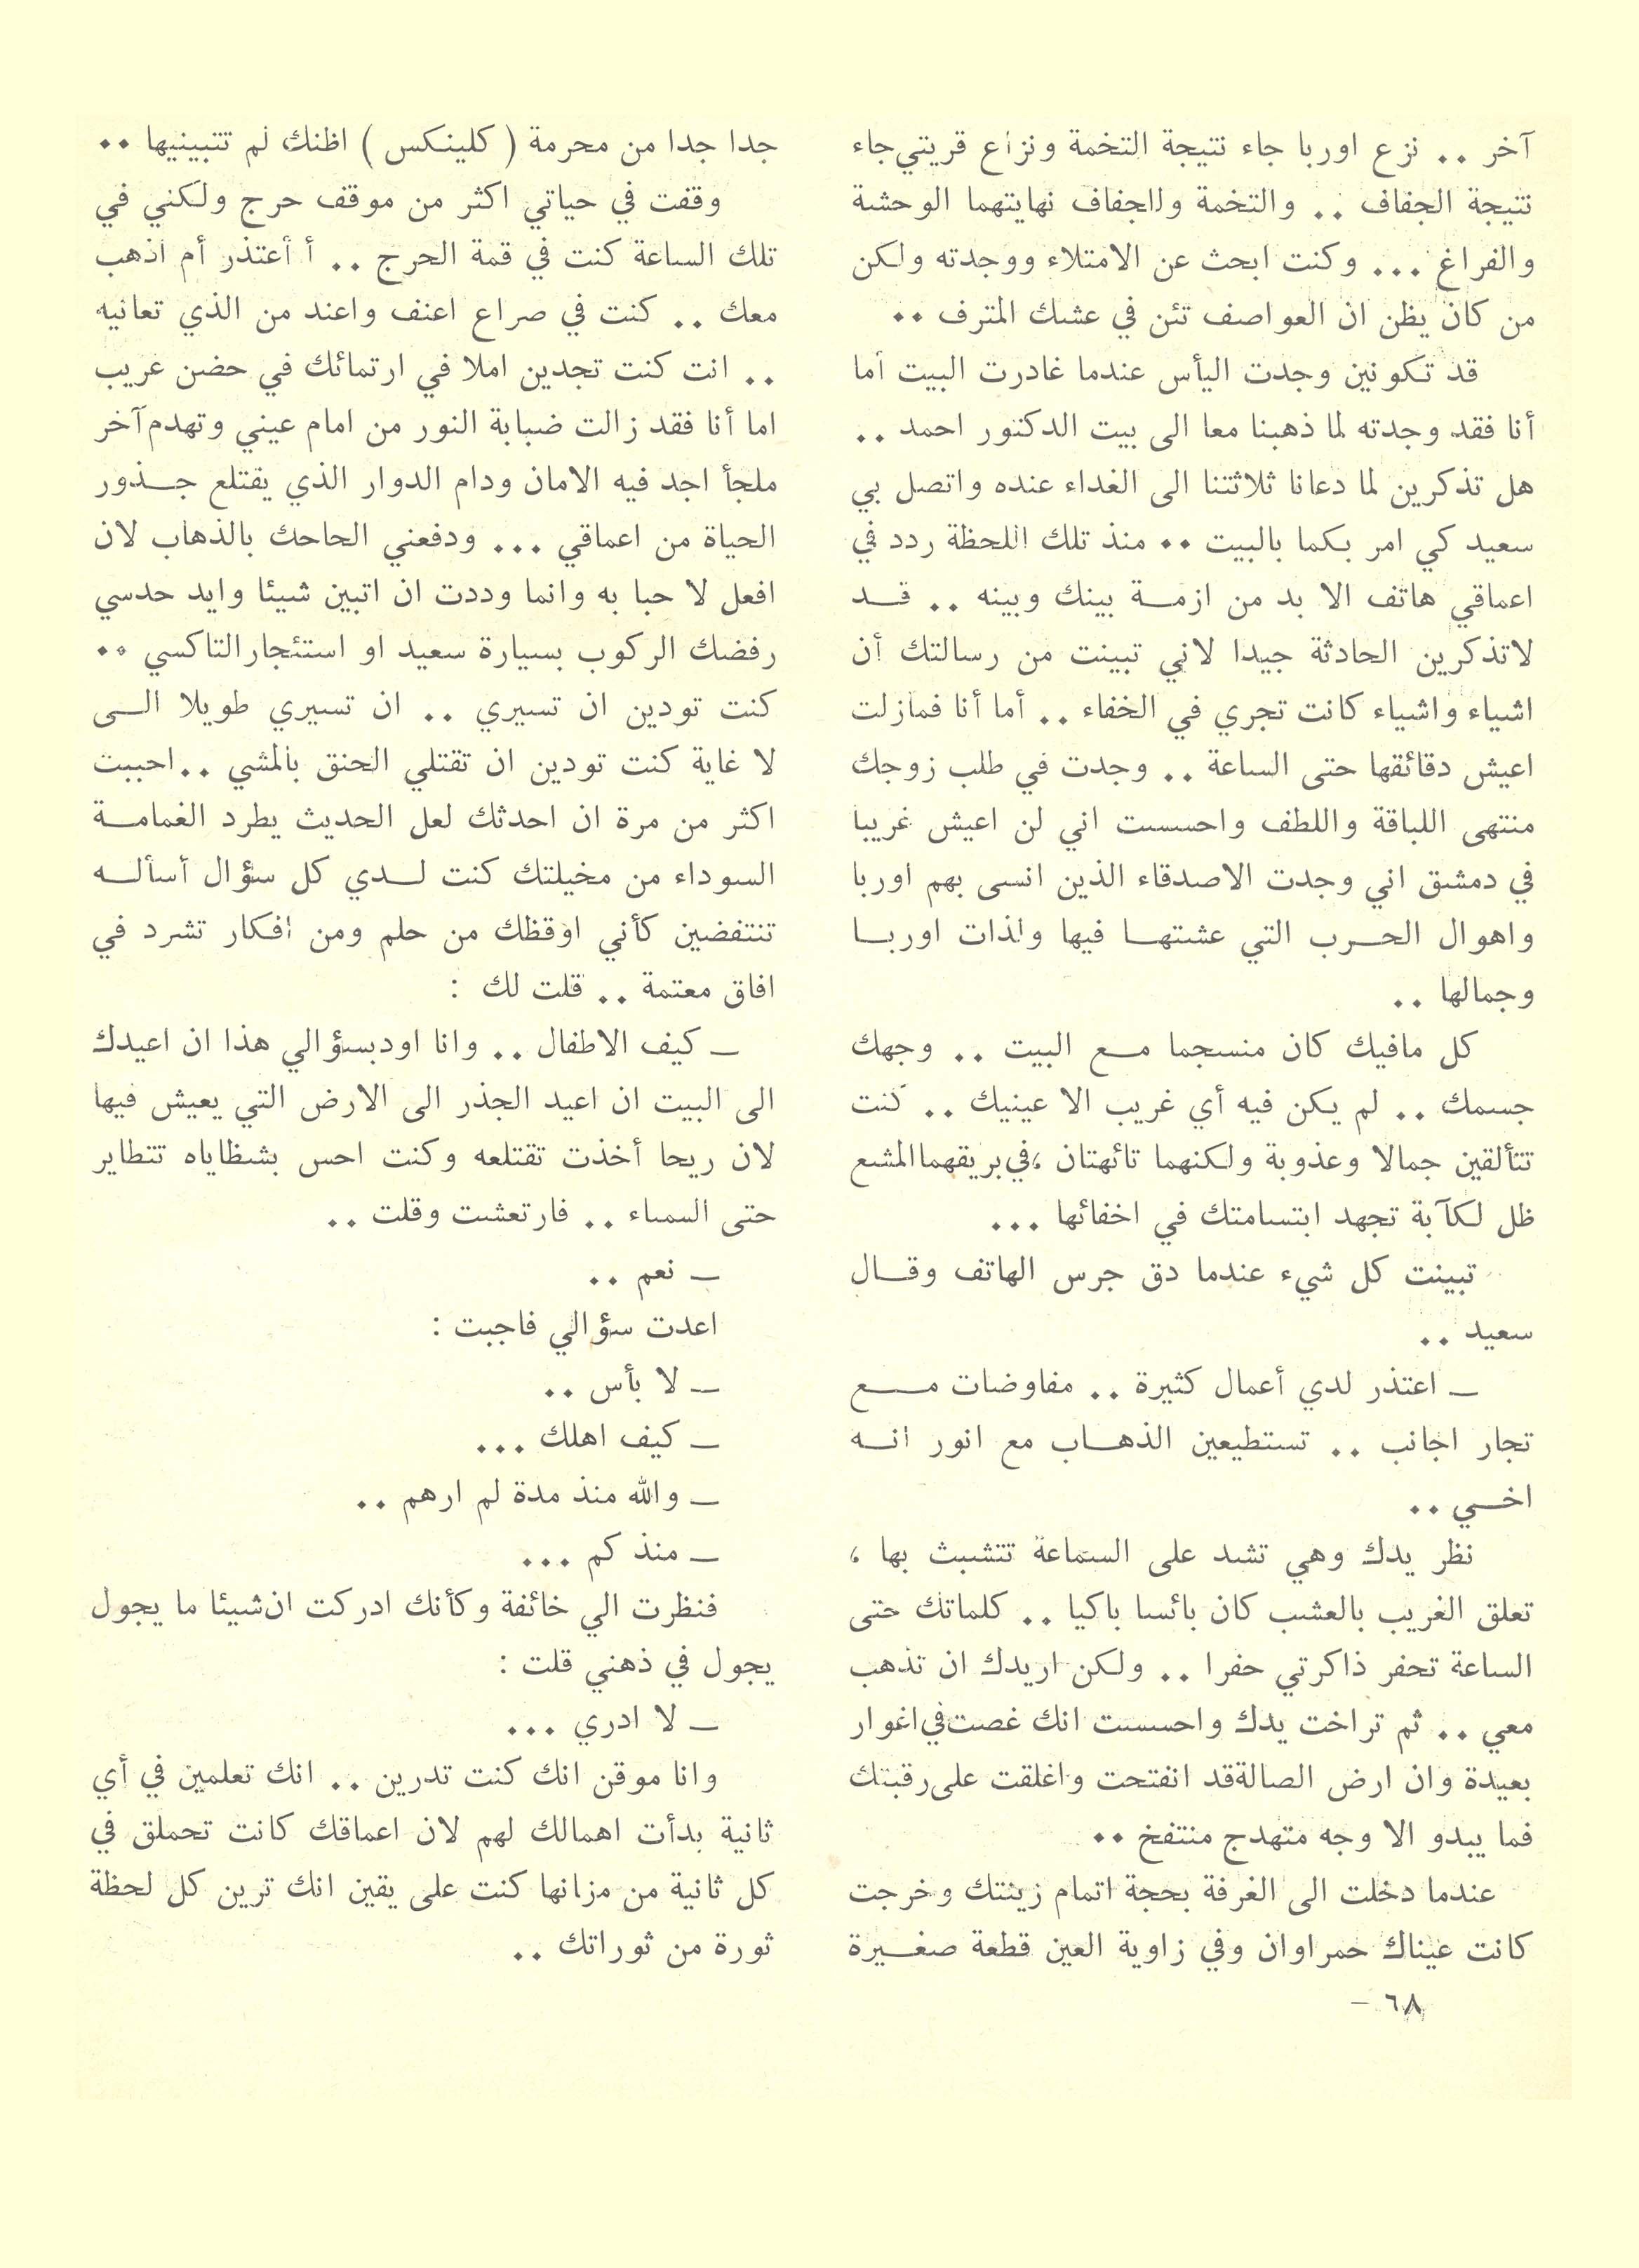 آخر .. نزع اوربا جاء نتيجة التخمة ونزاع قريتي جاء
نتيجة الجفاف .. والتخمة والجفاف نهايتهما الوحشة
والفراغ ... وكنت ابحث عن الامتلاء ووجدته ولكن
من كان يظن ان العواصف تئن في عشك المترف ..
قد تكونين وجدت اليأس عندما غادرت البيت اما
أنا فقد وجدته لما ذهبنا معا الى بيت الدكتور احمد ..
هل تذكرين لما دعانا ثلاثتنا الى الغداء عنده واتصل بي
سعيد كي امر بكما بالبيت .. منذ تلك اللحظة ردد في
اعماقي هاتف الا بد من ازمـة بينك وبينه .. قـد
لاتذكرين الحادثة جيدا لاني تبينت من رسالتك أن
اشياء واشياء كانت تجري في الخفاء .. أما أنا فمازلت
اعيش دقائقها حتى الساعة .. وجدت في طلب زوجك
منتهى اللباقة واللطف واحسست اني لن اعيش غريبا
في دمشق اني وجدت الاصدقاء الذين انسى بهم اوربا
واهوال الحـرب التي عشتهـا فيها ولذات اوربـا
وجمالها ..
كل مافيك كان منسجما مـع البيت .. وجهك
جسمك .. لم يكن فيه أي غريب الا عينيك .. كنت
تتألقين جمالا وعذوبة ولكنهما تائهتان ، في بريقهما المشع
ظل لكآبة تجهد ابتسامتك في اخفائها ...
تبينت كل شيء عندما دق جرس الهاتف وقـال
سعيد ..
ــ اعتذر لدي أعمال كثيرة .. مفاوضات مـع
تجار اجانب .. تستطيعين الذهـاب مع انور انـه
اخـي ..
نظر يدك وهي تشد على السماعة تتشبث بها ،
تعلق الغريب بالعشب كان بائسا باكيا .. كلماتك حتى
الساعة تحفر ذاكرتي حفرا .. ولكن اريدك ان تذهب
معي .. ثم تراخت يدك واحسست انك غصت في اغوار
بعيدة وان ارض الصالة قد انفتحت واغلقت على رقبتك
فما يبدو الا وجه متهدج منتفخ ..
عندما دخلت الى الغرفة بحجة اتمام زينتك وخرجت
كانت عيناك حمراوان وفي زاوية العين قطعة صغـيرة
جدا جدا من محرمة ( كلينكس ) اظنك لم تتبينيها ..
وقفت في حياتي اكثر من موقف حرج ولكني في
تلك الساعة كنت في قمة الحرج .. أ أعتذر أم اذهب
معك .. كنت في صراع اعنف واعند من الذي تعانيه
.. انت كنت تجدين املا في ارتمائك في حضن غريب
اما أنا فقد زالت ضبابة النور من امام عيني وتهدم آخر
ملجأ اجد فيه الامان ودام الدوار الذي يقتلع جـذور
الحياة من اعماقي ... ودفعني الحاحك بالذهاب لان
افعل لا حبا به وانما وددت ان اتبين شيئا وايد حدسي
رفضك الركوب بسيارة سعيد او استئجار التاكسي ..
كنت تودين ان تسيري .. ان تسيري طويلا الـى
لا غاية كنت تودين ان تقتلي الحنق بالمشي .. احببت
اكثر من مرة ان احدثك لعل الحديث يطرد الغمامـة
السوداء من مخيلتك كنت لـدي كل سؤال أسألـه
تنتفضين كأني اوقظك من حلم ومن افكار تشرد في
افاق معتمة .. قلت لك :
ــ كيف الاطفال .. وانا اودبسؤالي هذا ان اعيدك
الى البيت ان اعيد الجذر الى الارض التي يعيش فيها
لان ريحا أخذت تقتلعه وكنت احس بشظاياه تتطاير
حتى السماء .. فارتعشت وقلت ..
ــ نعم ..
اعدت سؤالي فاجبت :
ــ لا بأس ..
ــ كيف اهلك ...
ــ والله منذ مدة لم ارهم ..
ــ منذ كم ...
فنظرت الي خائفة وكأنك ادركت ان شيئا ما يجول
يجول في ذهني قلت :
ــ لا ادري ...
وانا موقن انك كنت تدرين .. انك تعلمين في أي
ثانية بدأت اهمالك لهم لان اعماقك كانت تحملق في
كل ثانية من مزانها كنت على يقين انك ترين كل لحظة
ثورة من ثوراتك ..
٦٨ –